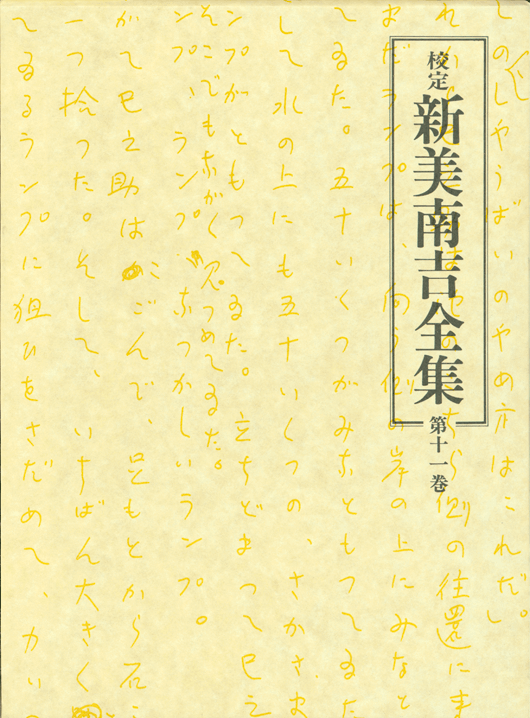 校定
新美南吉全集
第十一巻
とのしやうばいのやめ方はこれだ。」
側の往還に
まだランプは、向う側の岸の上にみなと
てゐた。五十いくつがみなともつてゐた
して水の上にも五十いくつの、さかさま
ンプがともつてゐた。立ちどまつて巳之
そこでもながく見つめてゐた。
ンプ、ランプ、なつかしいランプ。
がて巳之助はかごんで、足もとから石
一つ拾つた。そして、いちばん大きく
てゐるランプに狙ひをさだめて、力い